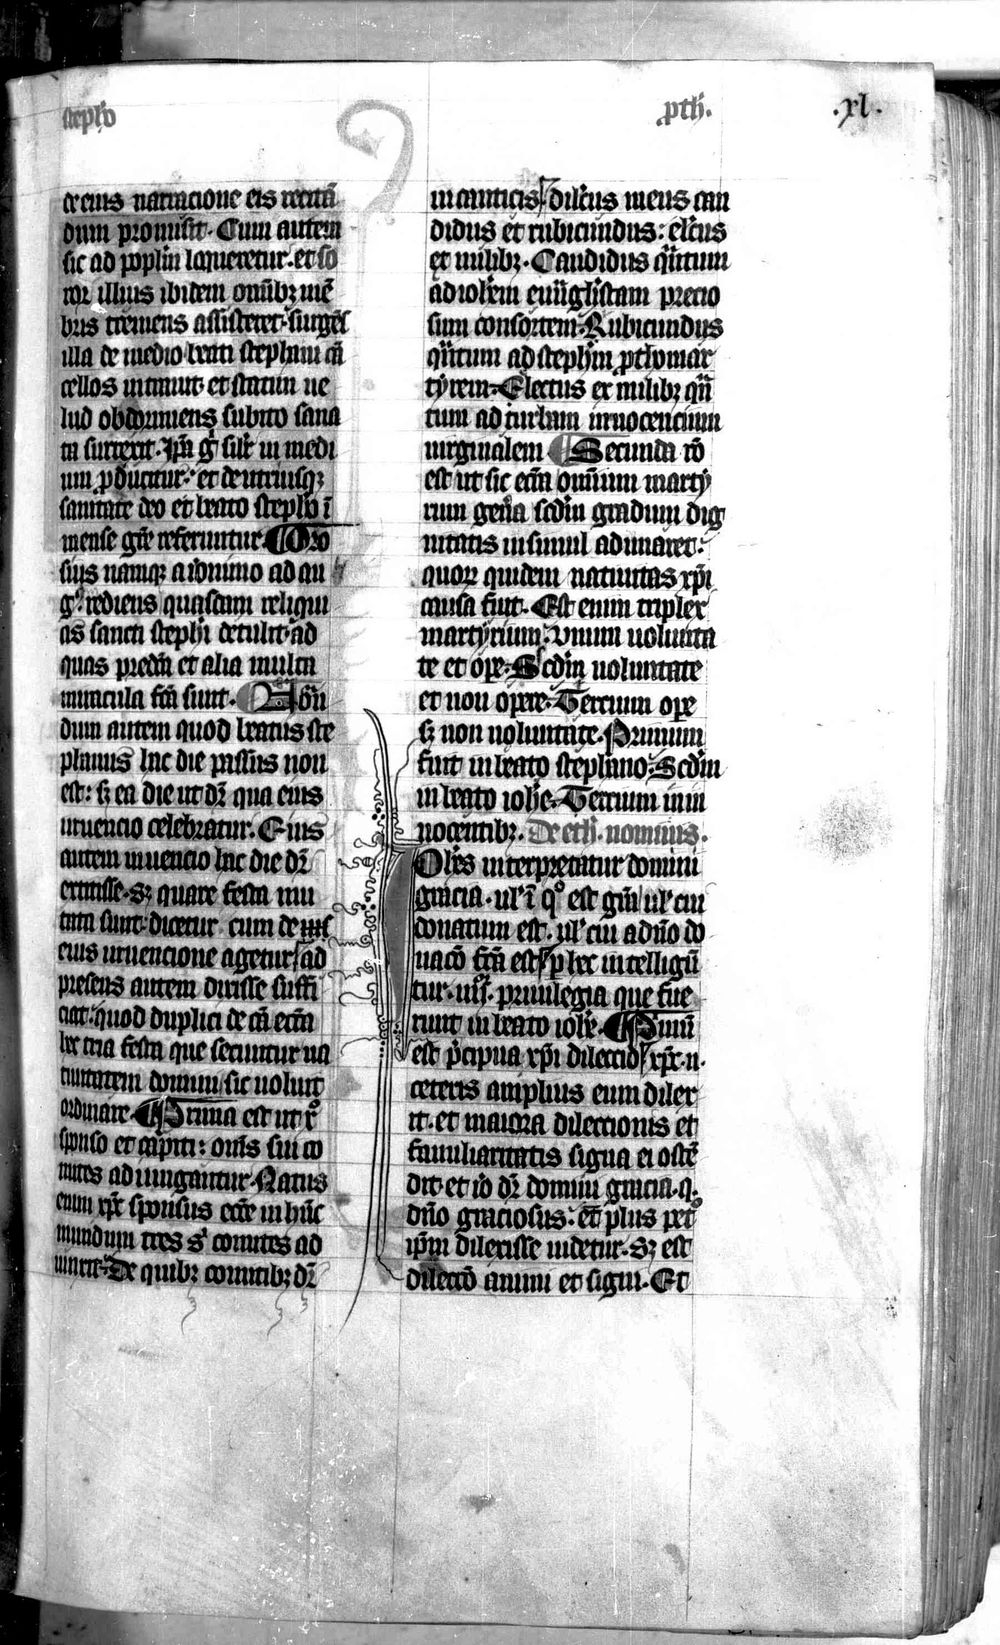 stepħo
ptħ.
.xl.
de eius narracione eis recitā
dum promisit. Cum autem
sic ad poplm̄ loqueretur. et so
ror illius ibidem om̄ibꝫ mē
bris tremens assisteret. surgēs
illa de medio beati stephani cā
cellos intrauit et statim ue
lud obdormiens subito sana
ta surrexit. Ip̄a gͥ silr̄ in medi
um ꝓducitur. et de utriusqꝫ
sanitate deo et beato stepħo ī
mense grē referuntur. Oro
sius namqꝫ a iħonimo ad au
gꝰ. rediens quasdam reliqui
as sancti stephī detulit. ad
quas predc̄a et alia multa
miracula fc̄a sunt. Nōn
dum autem quod beatus ste
phanus hac die passus non
est: sꝫ ea die ut dꝫ qua eius
inuencio celebratur. Eius
autem inuencio hac die dꝫ
extitisse. Sꝫ quare festa mu
tata sunt: dicetur cum de
eius inuencione agetur ad
presens autem dixisse suffi
ciat. quod duplici de cā ecc̄a
hec tria festa que secuntur na
tiuitatem domini sic uoluit
ordinare. Prima est ut xͦ
sponso et capiti: om̄s sui co
mites adiungantur. Natus
enim xp̄c sponsus ecc̄e in hūc
mundum tres sͥ comites ad
iunxit. De quibꝫ comitibꝫ dꝫ
in canticis dilc̄us meus can
didus et rubicundus: elc̄us
ex milibꝫ. Candidus qn̄tum
ad ioħem euuāglistam precio
sum confessorem. Rubicundus
qn̄tum ad stephm̄ ꝓthomar
tyrem. Electus ex milibꝫ qn̄
tum ad turbam innocencium
uirginalem Secunda rō
est ut sic ecc̄a omnium marty
rum gen̄a scdm̄ gradum dig
nitatis in simul adunaret.
quoꝝ quidem natiuitas xp̄i
causa fuit. Est enim triplex
martyrium. vnum uolunta
te et oꝑe. Scdm̄ uoluntate
et non opere. Tercium oꝑe
sꝫ non uoluntate. Primum
fuit in beato stephano. Scdm̄
in beato ioħe. Tercium in in
nocentibꝫ. De etħ. nominis.
Iohēs interpretatur domini
gracia. ul' ī qͦ est grā ul' cui
donatum est. ul' cui a dn̄o do
nacō fc̄a est ꝑ hec intelligū
tur. iiijͦ. priuilegia que fue
runt in beato ioħe. Primū
est p̄cipua xp̄i dileccio xp̄c .n.
ceteris amplius eum dilex
it. et maiora dileccionis et
familiaritatis signa ei ostē
dit. et iō dꝫ domini gracia. q.
dn̄o graciosus. ec̄ plus petͦ
ip̄m dilexisse uidetur. Sꝫ est
dileccō animi et signi. Et